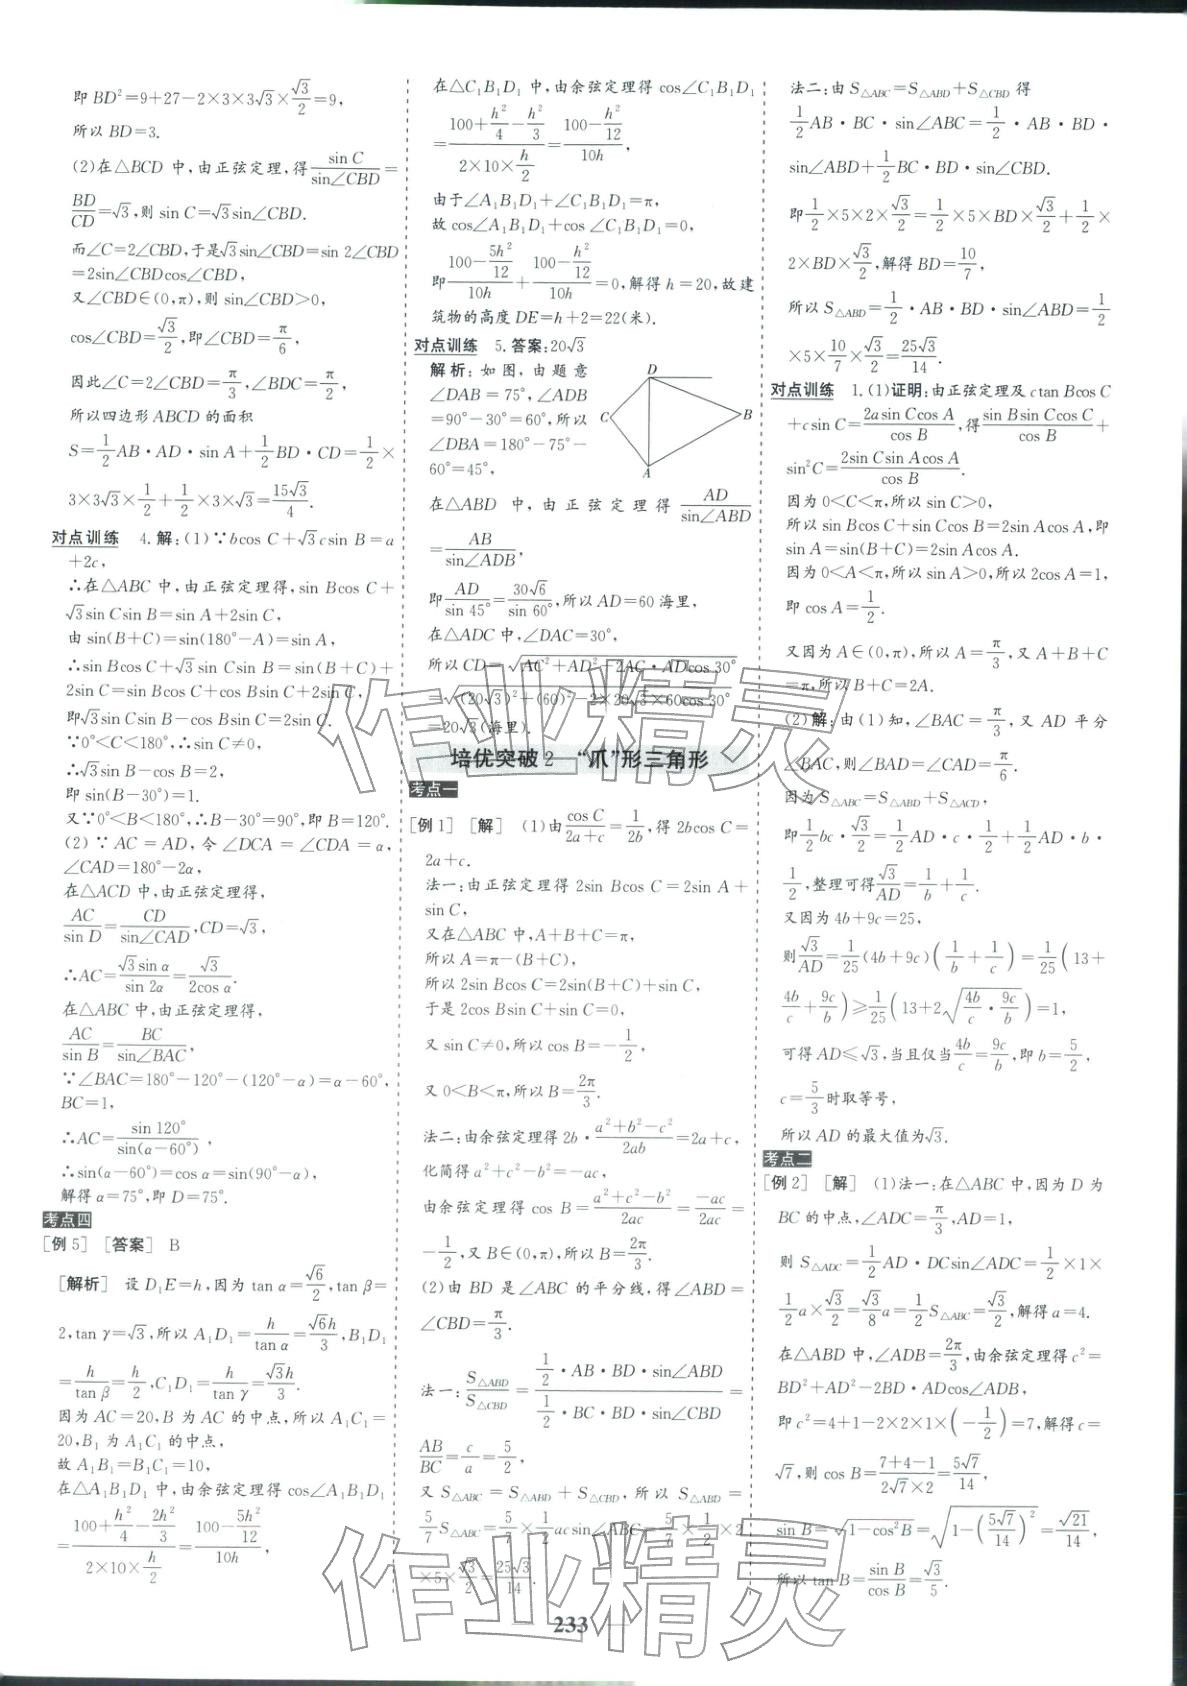 即 BD²=9+27-2×3×3√3×√3/2=9,
所以 BD=3.
(2)在△BCD 中,由正弦定理,得 sin C/sin∠CBD=
BD/CD=√3,则 sin C=√3sin∠CBD.
而∠C=2∠CBD,于是√3sin∠CBD=sin 2∠CBD
=2sin∠CBDcos∠CBD,
又∠CBD∈(0,π),则 sin∠CBD>0,
cos∠CBD=√3/2,即∠CBD=π/6,
因此∠C=2∠CBD=π/3,∠BDC=π/2,
所以四边形 ABCD 的面积
S=1/2AB·AD·sin A+1/2BD·CD=1/2×
3×3√3×1/2+1/2×3×√3=15√3/4.
对点训练 4.解:(1)∵bcos C+√3csin B=a
+2c,
∴在△ABC 中,由正弦定理得,sin Bcos C+
√3sin Csin B=sin A+2sin C,
由 sin(B+C)=sin(180°-A)=sin A,
∴sin Bcos C+√3sin Csin B=sin(B+C)+
2sin C=sin Bcos C+cos Bsin C+2sin C,
即√3sin Csin B-cos Bsin C=2sin C.
∵0°<C<180°,∴sin C≠0,
∴√3sin B-cos B=2,
即 sin(B-30°)=1.
又∵0°<B<180°,∴B-30°=90°,即 B=120°.
(2)∵AC=AD,令∠DCA=∠CDA=α,
∠CAD=180°-2α,
在△ACD 中,由正弦定理得,
AC/sin D=CD/sin∠CAD,CD=√3,
∴AC=√3sin α/sin 2α=√3/2cos α.
在△ABC 中,由正弦定理得,
AC/sin B=BC/sin∠BAC,
∵∠BAC=180°-120°-(120°-α)=α-60°,
BC=1,
∴AC=sin 120°/sin(α-60°),
∴sin(α-60°)=cos α=sin(90°-α),
解得 α=75°,即 D=75°.
考点四
[例 5] [答案] B
[解析] 设 D₁E=h,因为 tan α=√6/2,tan β=
2,tan γ=√3,所以 A₁D₁=h/tan α=√6h/3,B₁D₁
=h/tan β=h/2,C₁D₁=h/tan γ=√3h/3.
因为 AC=20,B 为 AC 的中点,所以 A₁C₁=
20,B₁ 为 A₁C₁ 的中点,
故 A₁B₁=B₁C₁=10,
在△A₁B₁D₁ 中,由余弦定理得 cos∠A₁B₁D₁
=(100+h²/4-2h²/3)/(2×10×h/2)=(100-5h²/12)/10h,
在△C₁B₁D₁ 中,由余弦定理得 cos∠C₁B₁D₁
=(100+h²/4-h²/3)/(2×10×h/2)=(100-h²/12)/10h,
由于∠A₁B₁D₁+∠C₁B₁D₁=π,
故 cos∠A₁B₁D₁+cos∠C₁B₁D₁=0,
即(100-5h²/12)/10h+(100-h²/12)/10h=0,解得 h=20,故建
筑物的高度 DE=h+2=22(米).
对点训练 5.答案:20√3
解析:如图,由题意
∠DAB=75°,∠ADB
=90°-30°=60°,所以
∠DBA=180°-75°-
60°=45°,
D
C
B
A
在△ABD 中,由正弦定理得 AD/sin∠ABD
=AB/sin∠ADB,
即AD/sin 45°=30√6/sin 60°,所以 AD=60 海里,
在△ADC 中,∠DAC=30°,
所以 CD=√(AC²+AD²-2AC·ADcos 30°)
=√((20√3)²+(60)²-2×20√3×60cos 30°)
=20√3(海里).
培优突破 2 “爪”形三角形
考点一
[例 1] [解] (1)由cos C/(2a+c)=1/2b,得 2bcos C=
2a+c.
法一:由正弦定理得 2sin Bcos C=2sin A+
sin C,
又在△ABC 中,A+B+C=π,
所以 A=π-(B+C),
所以 2sin Bcos C=2sin(B+C)+sin C,
于是 2cos Bsin C+sin C=0,
又 sin C≠0,所以 cos B=-1/2,
又 0<B<π,所以 B=2π/3.
法二:由余弦定理得 2b·(a²+b²-c²)/2ab=2a+c,
化简得 a²+c²-b²=-ac,
由余弦定理得 cos B=(a²+c²-b²)/2ac=-ac/2ac=
-1/2,又 B∈(0,π),所以 B=2π/3.
(2)由 BD 是∠ABC 的平分线,得∠ABD=
∠CBD=π/3.
法一:S△ABD/S△CBD=(1/2·AB·BD·sin∠ABD)/(1/2·BC·BD·sin∠CBD)=
AB/BC=c/a=5/2,
又 S△ABC=S△ABD+S△CBD,所以 S△ABD=
5/7S△ABC=5/7×1/2acsin∠ABC=5/7×1/2×2
×5×√3/2=25√3/14.
法二:由 S△ABC=S△ABD+S△CBD 得
1/2AB·BC·sin∠ABC=1/2·AB·BD·
sin∠ABD+1/2BC·BD·sin∠CBD.
即1/2×5×2×√3/2=1/2×5×BD×√3/2+1/2×
2×BD×√3/2,解得 BD=10/7,
所以 S△ABD=1/2·AB·BD·sin∠ABD=1/2
×5×10/7×√3/2=25√3/14.
对点训练 1.(1)证明:由正弦定理及 ctan Bcos C
+csin C=2asin Ccos A/cos B,得sin Bsin Ccos C/cos B+
sin²C=2sin Csin Acos A/cos B.
因为 0<C<π,所以 sin C>0,
所以 sin Bcos C+sin Ccos B=2sin Acos A,即
sin A=sin(B+C)=2sin Acos A.
因为 0<A<π,所以 sin A>0,所以 2cos A=1,
即 cos A=1/2.
又因为 A∈(0,π),所以 A=π/3,又 A+B+C
=π,所以 B+C=2A.
(2)解:由(1)知,∠BAC=π/3,又 AD 平分
∠BAC,则∠BAD=∠CAD=π/6.
因为 S△ABC=S△ABD+S△ACD,
即1/2bc·√3/2=1/2AD·c·1/2+1/2AD·b·
1/2,整理可得√3/AD=1/b+1/c.
又因为 4b+9c=25,
则√3/AD=1/25(4b+9c)(1/b+1/c)=1/25(13+
4b/c+9c/b)≥1/25(13+2√(4b/c·9c/b))=1,
可得 AD≤√3,当且仅当4b/c=9c/b,即 b=5/2,
c=5/3时取等号,
所以 AD 的最大值为√3.
考点二
[例 2] [解] (1)法一:在△ABC 中,因为 D 为
BC 的中点,∠ADC=π/3,AD=1,
则 S△ADC=1/2AD·DCsin∠ADC=1/2×1×
1/2a×√3/2=√3/8a=1/2S△ABC=√3/2,解得 a=4.
在△ABD 中,∠ADB=2π/3,由余弦定理得 c²=
BD²+AD²-2BD·ADcos∠ADB,
即 c²=4+1-2×2×1×(-1/2)=7,解得 c=
√7,则 cos B=(7+4-1)/(2√7×2)=5√7/14,
sin B=√(1-cos²B)=√(1-(5√7/14)²)=√21/14,
所以 tan B=sin B/cos B=√3/5.
233
作业精灵
作业精灵